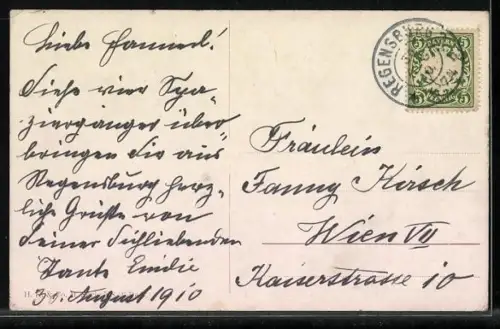 Liebe Fannerl!
Diese vier Spa-
ziergänger über-
bringen Dir aus
Regensburg herz-
liche Grüsse von
Deiner Dichliebenden
Tante Emilie
3. August 1910
REGENSBURG
BAYERN
5 5
Fräulein
Fanny Kirsch
Wien VII
Kaiserstrasse 10